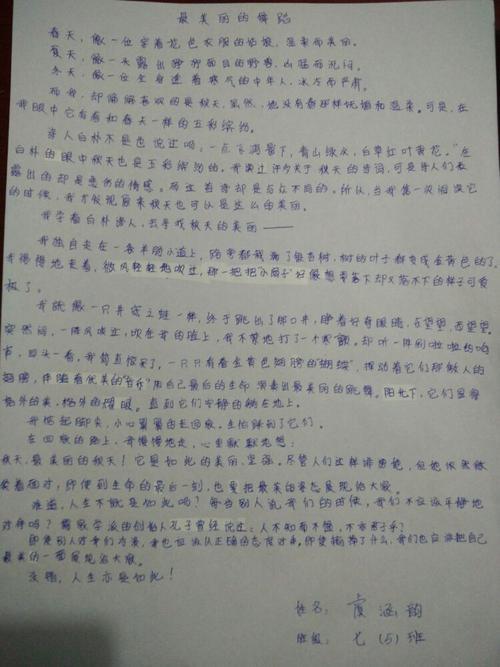 最美丽的舞蹈
春天，像一位穿着花色衣服的姑娘，温柔而美丽。
夏天，像一头露出狰狞面目的野兽，凶猛而沉闷。
冬天，像一位全身透着寒气的中年人，冰冷而严肃。
而我，却偏偏喜欢的是秋天，虽然，他没有春那样妩媚和温柔。可是，在
我眼中它有着和春天一样的五彩缤纷。
诗人白朴不是也说过吗：一点飞鸿影下，青山绿水，白草红叶黄花。"在
白朴的眼中秋天也是五彩缤纷的。我读过许多关于秋天的诗词，可是诗人们表
露出的却是悲伤的情感。而这首诗却是与众不同的。所以，当我第一次阅读它
的时候，我才发现原来秋天也可以是这么的美丽。
我学着白朴诗人，去寻找秋天的美丽——
我独自走在一条羊肠小道上，路旁都栽满了银杏树，树的叶子都变成金黄色的了。
我慢慢地走着，微风轻轻地吹过，那一把把"小扇子"好像想要落下却又落不下的样子可爱
极了。
我就像一只井底之蛙一样，终于跳出了那口井，睁着好奇眼睛，东望望，西望望。
突然间，一阵风吹过，吹在我的脸上，我不禁地打了一个寒颤。却听一阵啦啦的响
声，回头一看，我简直惊呆了。一只只有着金黄色翅膀的"蝴蝶"，挥动着它们那傲人的
翅膀，伴随着优美的"音乐"用自己最后的生命演奏出最美丽的跳舞。阳光下，它们显得
格外的美，格外的耀眼。直到它们宁静的躺在地上。
我踮起脚尖，小心翼翼的走回家，生怕踩到了它们。
在回家的路上，我慢慢地走，心里默默地想：
秋天，最美丽的秋天！它是如此的美丽，坚强。尽管人们这样排斥他，但他依然微
笑着面对，即使到生命的最后一刻，也要把最美的姿态展现给大家。
难道，人生不就是如此吗？每当别人说我们的时候，我们不应该平静地
对待吗？儒家学派的创始人孔子曾经说过：人不知而不愠，不亦君子乎？
即使别人对我们冷漠，我也应该从正确的态度对待。即使输掉了什么，我们也应该把自己
最美的一面展现给大家。
没错，人生亦是如此！
姓名：虞涵韵
班级：七（5）班